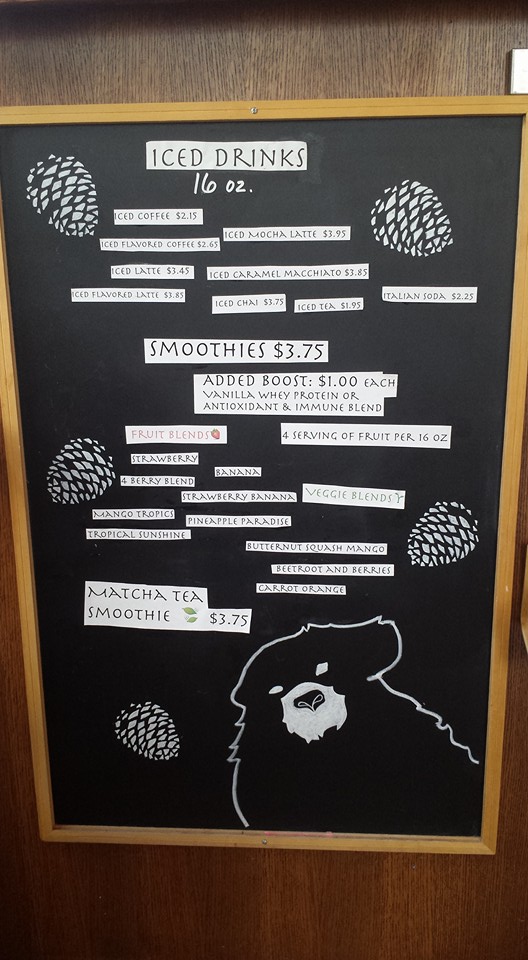 ICED DRINKS
16 oz.
ICED COFFEE $2.15
ICED MOCHA LATTE $3.95
ICED FLAVORED COFFEE $2.65
ICED LATTE $3.45
ICED CARAMEL MACCHIATO $3.85
ICED FLAVORED LATTE $3.85
ICED CHAI $3.75
ICED TEA $1.95
ITALIAN SODA $2.25
SMOOTHIES $3.75
ADDED BOOST: $1.00 EACH
VANILLA WHEY PROTEIN OR
ANTIOXIDANT & IMMUNE BLEND
FRUIT BLENDS
4 SERVING OF FRUIT PER 16 OZ
STRAWBERRY
BANANA
4 BERRY BLEND
STRAWBERRY BANANA
VEGGIE BLENDS
MANGO TROPICS
PINEAPPLE PARADISE
TROPICAL SUNSHINE
BUTTERNUT SQUASH MANGO
BEETROOT AND BERRIES
CARROT ORANGE
MATCHA TEA
SMOOTHIE $3.75